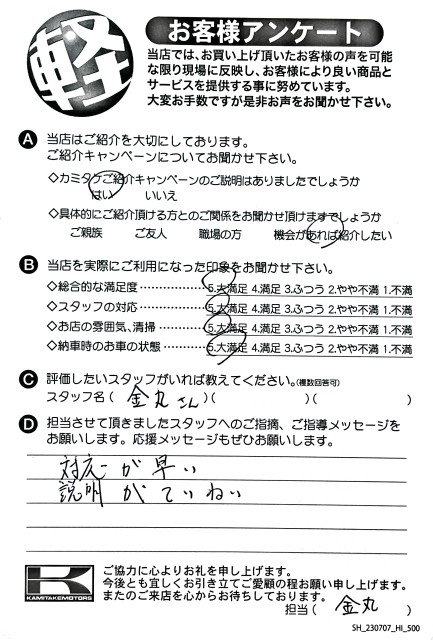 軽
お客様アンケート
当店では、お買い上げ頂いたお客様の声を可能
な限り現場に反映し、お客様により良い商品と
サービスを提供する事に努めています。
大変お手数ですが是非お声をお聞かせ下さい。
A 当店はご紹介を大切にしております。
ご紹介キャンペーンについてお聞かせ下さい。
◇カミタケご紹介キャンペーンのご説明はありましたでしょうか
はい いいえ
◇具体的にご紹介頂ける方とのご関係をお聞かせ頂けますでしょうか
ご親族 ご友人 職場の方 機会があれば紹介したい
B 当店を実際にご利用になった印象をお聞かせ下さい。
◇総合的な満足度……………5.大満足 4.満足 3.ふつう 2.やや不満 1.不満
◇スタッフの対応……………5.大満足 4.満足 3.ふつう 2.やや不満 1.不満
◇お店の雰囲気、清掃………5.大満足 4.満足 3.ふつう 2.やや不満 1.不満
◇納車時のお車の状態………5.大満足 4.満足 3.ふつう 2.やや不満 1.不満
C 評価したいスタッフがいれば教えてください。(複数回答可)
スタッフ名( 金丸さん )( )( )
D 担当させて頂きましたスタッフへのご指摘、ご指導メッセージを
お願いします。応援メッセージもぜひお願いします。
対応が早い
説明がていねい
K KAMITAKEMOTORS
ご協力に心よりお礼を申し上げます。
今後とも宜しくお引き立てご愛顧の程お願い申し上げます。
またのご来店を心からお待ちしております。
担当( 金丸 )
SH_230707_HI_500